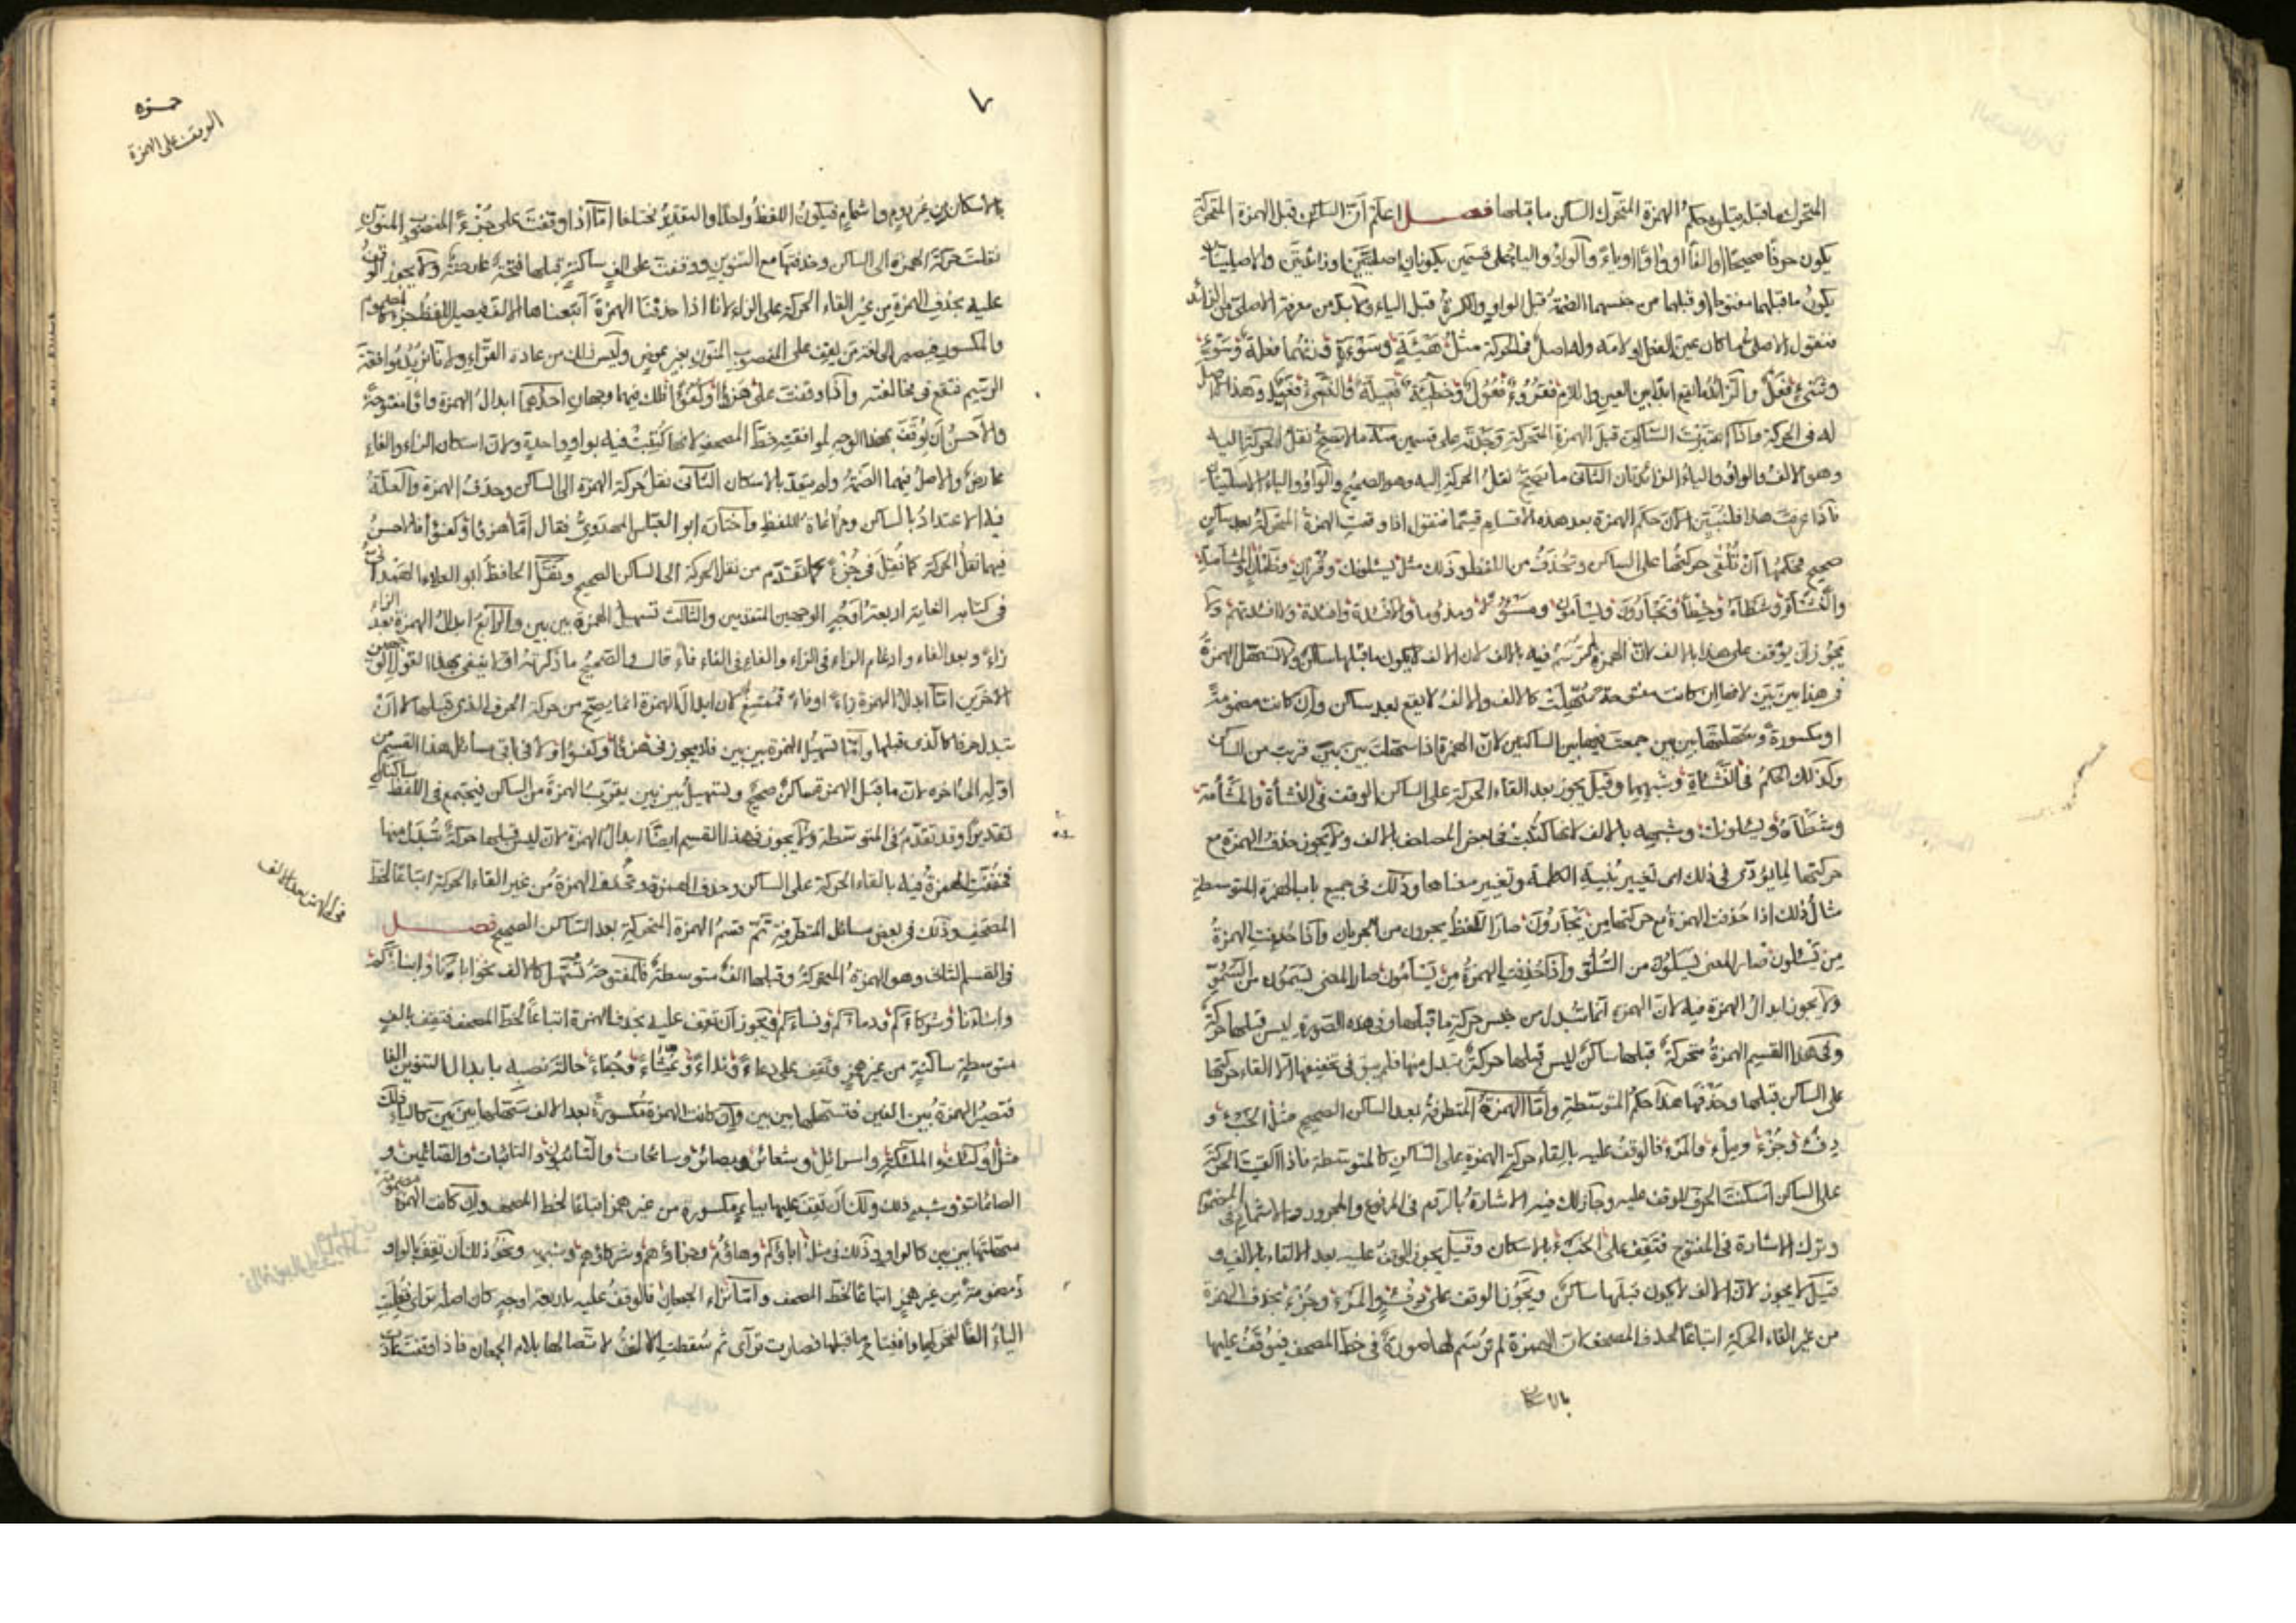 المتحرك ما قبلها قبل حكم الهمزة المتحرك الساكن ما قبلها فصل اعلم ان الساكن قبل الهمزة المتحركة
يكون حرفا صحيحا او الفا او واوا او ياء والواو والياء على قسمين يكونان اصليتين او زائدتين والاصليتان
يكون ما قبلهما مفتوحا او قبلهما من جنسهما الضمة قبل الواو والكسرة قبل الياء ولا بد من معرفة الاصلى من الزائد
فنقول الاصلى ما كان عين الفعل او لامه وله اصل فى الحركة مثل هيئة وسوءة وزنهما فعلة وسوء
وشىء فعل والزائد ما يقع ابدا بين العين واللام فقروء فعول وخطيئة فعيلة والنسىء فعيل وهذا لا اصل
له فى الحركة فاذا اعتبرت الساكن قبل الهمزة المتحركة وجدته على قسمين منه ما لا يصح نقل الحركة اليه
وهو الالف والواو والياء الزائدتان الثانى ما يصح نقل الحركة اليه وهو الصحيح والواو والياء الاصليتان
فاذا عرفت هذا فلنبين الآن حكم الهمزة بعد هذه الاقسام قسما فنقول اذا وقعت الهمزة المتحركة بعد ساكن
صحيح فحكمها ان تلقى حركتها على الساكن وتحذف من اللفظ وذلك مثل يسئلونك وقرآن وظمآن والمشأمة
والنشأة وشطأه وخطأ وتجأرون ويسأمون ومسئولا ومذءوما والافئدة وافئدة ولا افئدتهم ولا
يجوز ان يوقف على هذا بالالف لان الهمزة لم ترسم فيه بالالف لان الالف لا يكون ما قبلها ساكن ولا تسهل الهمزة
فى هذا بين بين لانها ان كانت مفتوحة سهلت كالالف والالف لا يقع بعد ساكن وان كانت مضمومة
او مكسورة وسهلتها بين بين جمعت فيها بين الساكنين لان الهمزة اذا سهلت بين بين قربت من الساكن
وكذلك الحكم فى النشأة وشبهها وقيل يجوز بعد القاء الحركة على الساكن الوقف فى النشأة والمشأمة
وشطأه ويسئلونك وشبهه بالالف لانها كتبت فى بعض المصاحف بالالف ولا يجوز حذف الهمزة مع
حركتها لما يؤدى فى ذلك الى تغيير بنية الكلمة وتغيير معناها وذلك فى جميع باب الهمزة المتوسطة
مثال ذلك اذا حذفت الهمزة مع حركتها من يجأرون صار اللفظ يجرون من الجريان واذا حذفت الهمزة
من يسئلون صار المعنى يسلون من السلو واذا حذفت الهمزة من يسأمون صار المعنى يسمون من السمو
ولا يجوز ابدال الهمزة فيه لان الهمزة انما تبدل من جنس حركة ما قبلها وفى هذه الصورة ليس قبلها حركة
وفى هذا القسم الهمزة متحركة قبلها ساكن ليس قبلها حركة تبدل منها فلم يبق فى تخفيفها الا القاء حركتها
على الساكن قبلها وحذفها هذا حكم المتوسطة واما الهمزة المتطرفة بعد الساكن الصحيح مثل الخبء و
دفء وجزء وملء والمرء فالوقف عليه بالقاء حركة الهمزة على الساكن كالمتوسطة فاذا القيت الحركة
على الساكن اسكنت الحرف للوقف عليه وجاز لك فيه الاشارة بالروم فى المرفوع والمجرور والاشمام فى المضموم
وترك الاشارة فى المفتوح فتقف على الخبء بالاسكان وقيل يجوز الوقف عليه بعد الالقاء بالالف و
قيل لا يجوز لان الالف لا يكون قبلها ساكن ويجوز الوقف على دفء والمرء وجزء بحذف الهمزة
من غير القاء الحركة اتباعا لحذف المصحف لان الهمزة لم ترسم لها صورة فى خط المصحف فيوقف عليها
بالاسكان
حمزه
الوقف على الهمزة
بالاسكان من غير روم واشمام فيكون اللفظ واحدا والتقدير مختلفا اما اذا وقفت على جزءا المنصوب المنون
نقلت حركة الهمزة الى الساكن وحذفتها مع التنوين ووقفت على الف ساكنة قبلها فتحة عارضة ولا يجوز الوقف
عليه بحذف الهمزة من غير القاء الحركة على الزاء لانا اذا حذفنا الهمزة اتبعناها الالف فيصير اللفظ جزء كالمضموم
والمكسور فيصير الى لغة من يقف على المنصوب المنون بغير عوض وليس ذلك من عادة القراء ولانا نريد موافقة
الرسم فنقع فى مخالفته واذا وقفت على هزؤا وكفؤا فلك فيهما وجهان احدهما ابدال الهمزة واوا مفتوحة
والاحسن ان يوقف بهذا الوجه لموافقته خط المصحف لانها كتبت فيه بواو واحدة ولان اسكان الزاء والفاء
عارض والاصل فيهما الضمة ولم يعتد بالاسكان الثانى نقل حركة الهمزة الى الساكن وحذف الهمزة والعلة
فيه الاعتداد بالساكن ومراعاة اللفظ واختار ابو العباس المهدوى فقال اما هزؤا وكفؤا فالاحسن
فيهما نقل الحركة كما نقل فى جزء كما تقدم من نقل الحركة الى الساكن الصحيح ونقل الحافظ ابو العلاء الهمدانى
فى كتابه الغاية اربعة اوجه الوجهين المتقدمين والثالث تسهيل الهمزة بين بين والرابع ابدال الهمزة بعد الزاء
زاء وبعد الفاء وادغام الزاء فى الزاء والفاء فى الفاء فاء قال والصحيح ما ذكرته اولا ينبغى بهذا القول الوجهين
الاخرين اما ابدال الهمزة زاء او فاء فممتنع لان ابدال الهمزة انما يصح من حركة الحرف الذى قبلها لا ان
تبدل حرفا كالذى قبلها واما تسهيل الهمزة بين بين فلا يجوز فى هزؤا وكفؤا ولا فى باقى مسائل هذا القسم من
اوله الى اخره لان ما قبل الهمزة ساكن صحيح وتسهيل بين بين يقرب الهمزة من الساكن فيجتمع فى اللفظ ساكنان
تقديرا وقد تقدم فى المتوسطة ولا يجوز فى هذا القسم ايضا ابدال الهمزة لان ليس قبلها حركة تبدل منها
فخففت الهمزة فيه بالقاء الحركة على الساكن وحذف الهمزة وتحذف الهمزة من غير القاء الحركة اتباعا لخط
المصحف وذلك فى بعض مسائل المتطرفة تم قسم الهمزة المتحركة بعد الساكن الصحيح فصل
فى القسم الثانى وهو الهمزة المتحركة وقبلها الف متوسطة فالمفتوحة تسهل كالالف نحو اباءنا وابناءكم
وابناءنا وشركاءكم ودماءكم ونساءكم ويجوز ان تقف عليه بحذف الهمزة اتباعا لخط المصحف فتقف بالف
متوسطة ساكنة من غير همز وتقف على دعاء ونداء وغثاء وجفاء حالة نصبه بابدال التنوين الفا
فتصير الهمزة بين الفين فتسهلها بين بين وان كانت الهمزة مكسورة بعد الالف سهلتها بين بين كالياء وذلك
مثل اولئك والملئكة واسرائيل وشعائر وبصائر وسائحات والتائبون والتائبات والقائمين و
الصائمات وشبه ذلك ولك ان تقف عليها بياء مكسورة من غير همز اتباعا لخط المصحف وان كانت الهمزة مضمومة
سهلتها بين بين كالواو وذلك فى مثل اباؤكم وهاؤم وجزاؤهم وشركاؤهم وشبهه ويجوز لك ان تقف بالواو
مضمومة من غير همز اتباعا لخط المصحف واما تراء الجمعان فالوقف عليه باربعة اوجه كان اصله تراءى فقلبت
الياء الفا لتحركها وانفتاح ما قبلها فصارت تراءى ثم سقطت الالف لاتصالها بلام الجمعان فاذا وقفت عادت
فى الهمز بعد الالف